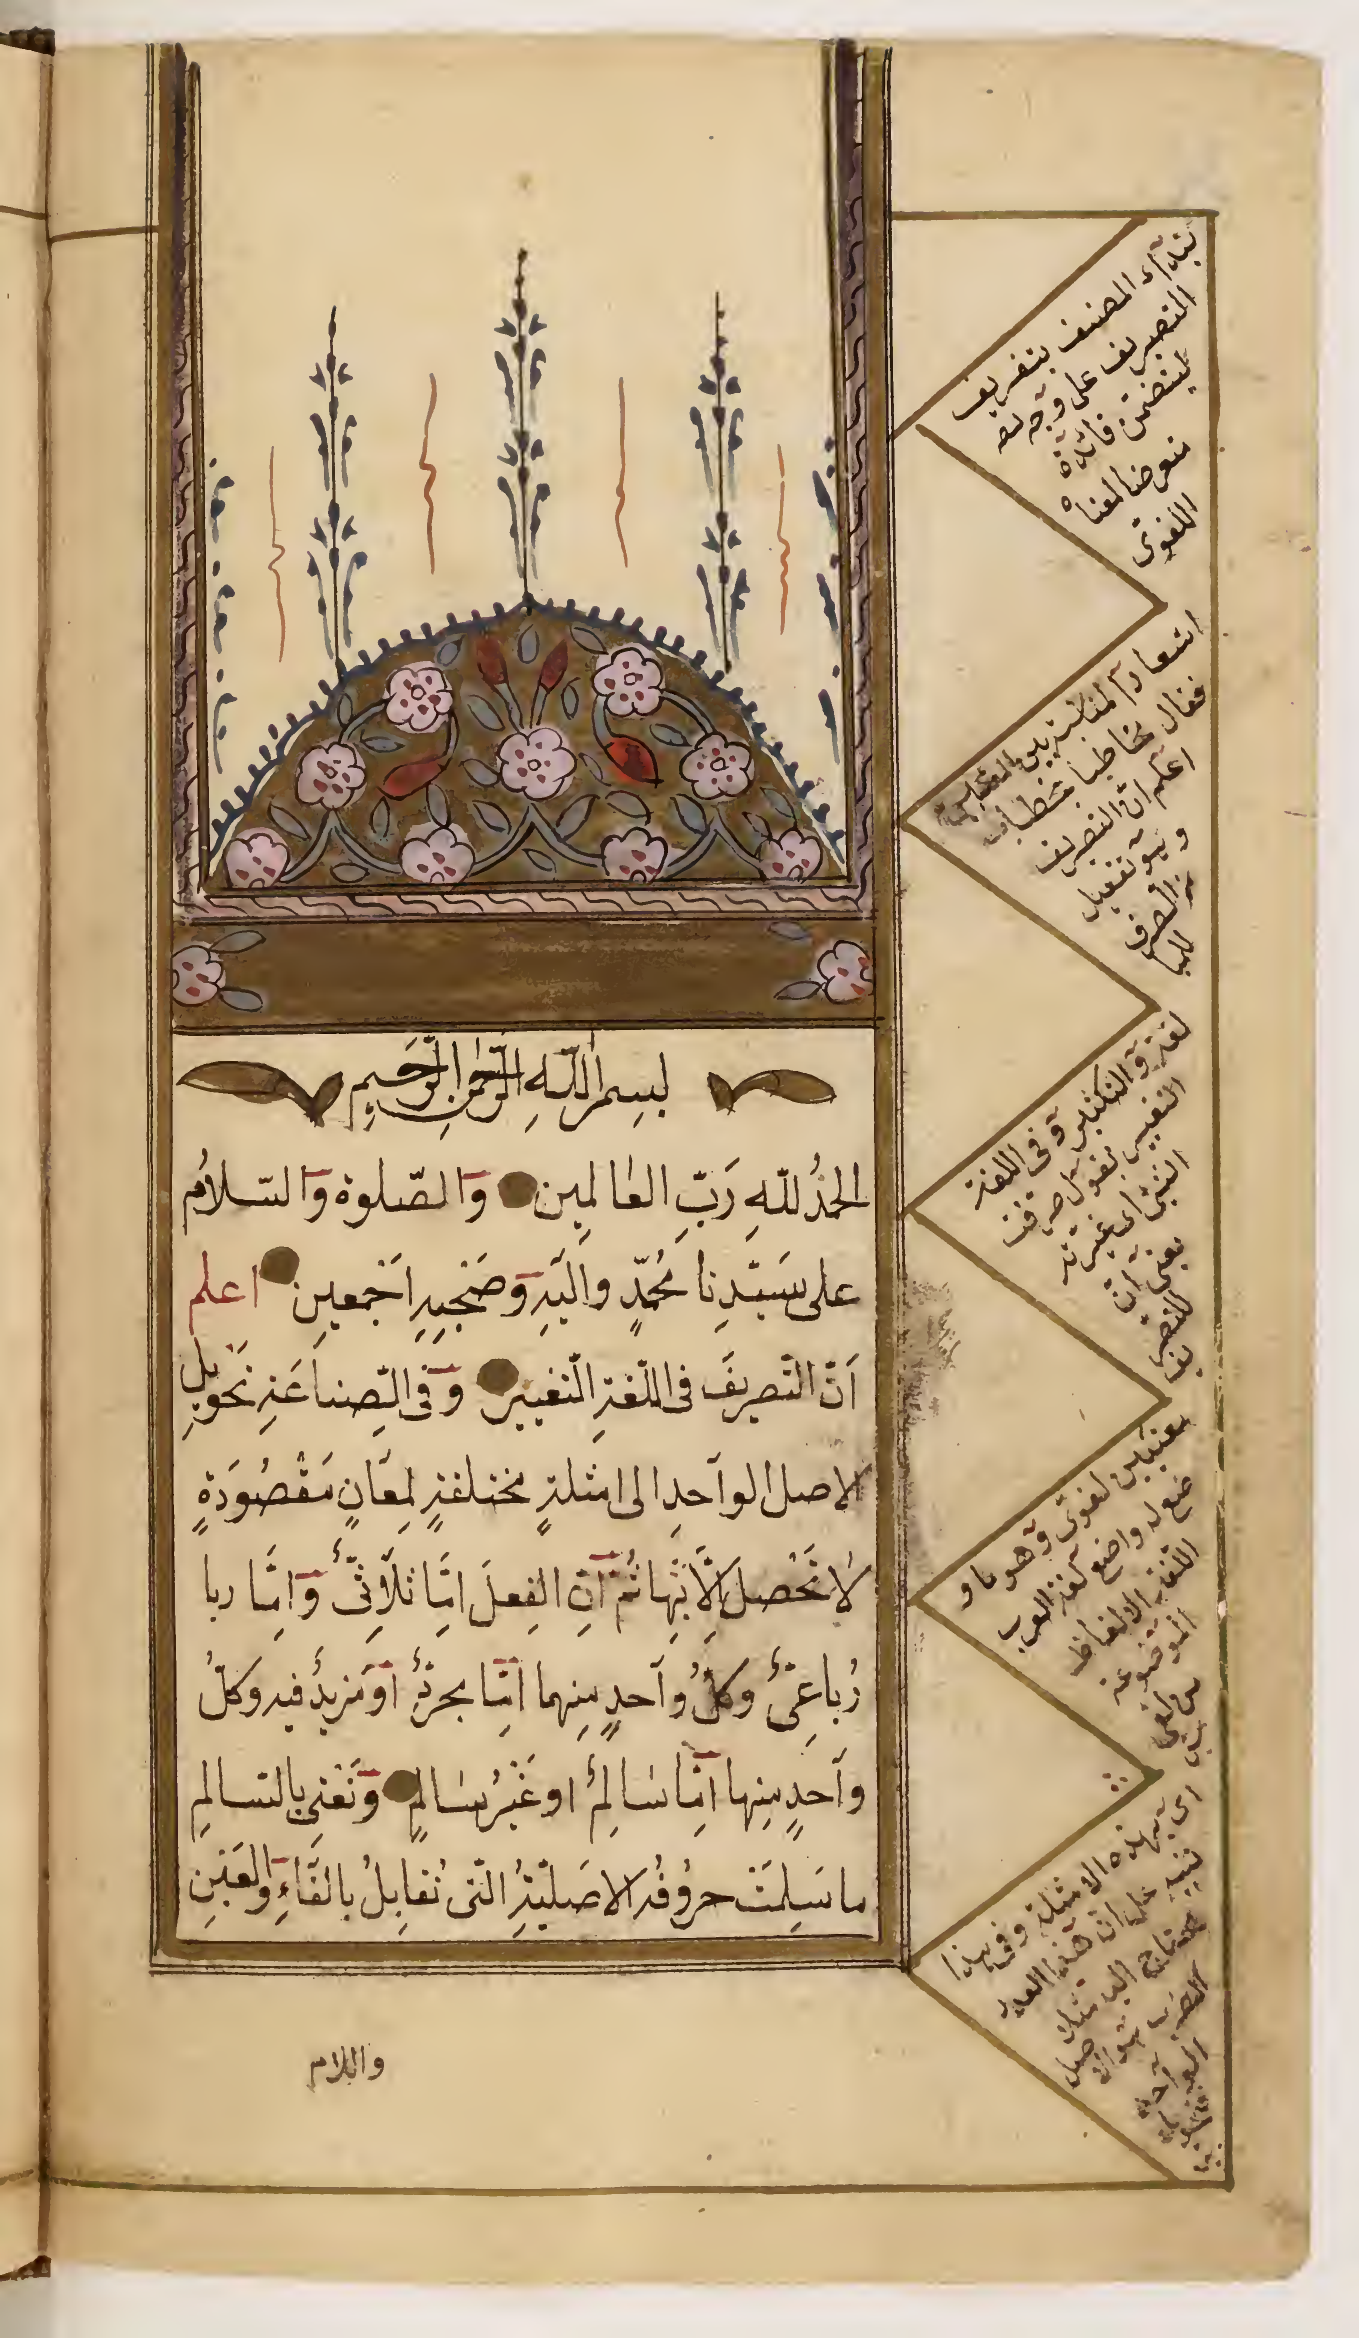 بسم الله الرحمن الرحيم
الحمد لله رب العالمين والصلوة والسلام
على سيدنا محمد واله وصحبه اجمعين اعلم
ان التصريف فى اللغة التغيير وفى الصناعة تحويل
الاصل الواحد الى امثلة مختلفة لمعان مقصودة
لا تحصل الا بها ثم ان الفعل اما ثلاثى واما ربا
رباعى وكل واحد منهما اما مجرد او مزيد فيه وكل
واحد منها اما سالم او غير سالم ونعنى بالسالم
ما سلمت حروفه الاصلية التى تقابل بالفاء والعين
واللام
المصنف بتعريف
التصريف على وجه
ليتضمن فائدة
متعرضا لمعناه
اللغوى
فقال مخاطبا
اعلم ان التصريف
وهو تفعيل
من الصرف
للمبا
لغة والتكثير وفى اللغة
التغيير تقول صرفت
الشئ اى غيرته
يعنى ان
للتصر
يف
معنيين لغوى وهو ما و
ضع له واضع لغة العرب
اللغة الالفاظ
الموضوعة
اى بهذه الامثلة وفى هذا
تنبيه على ان هذا العلم
محتاج اليه